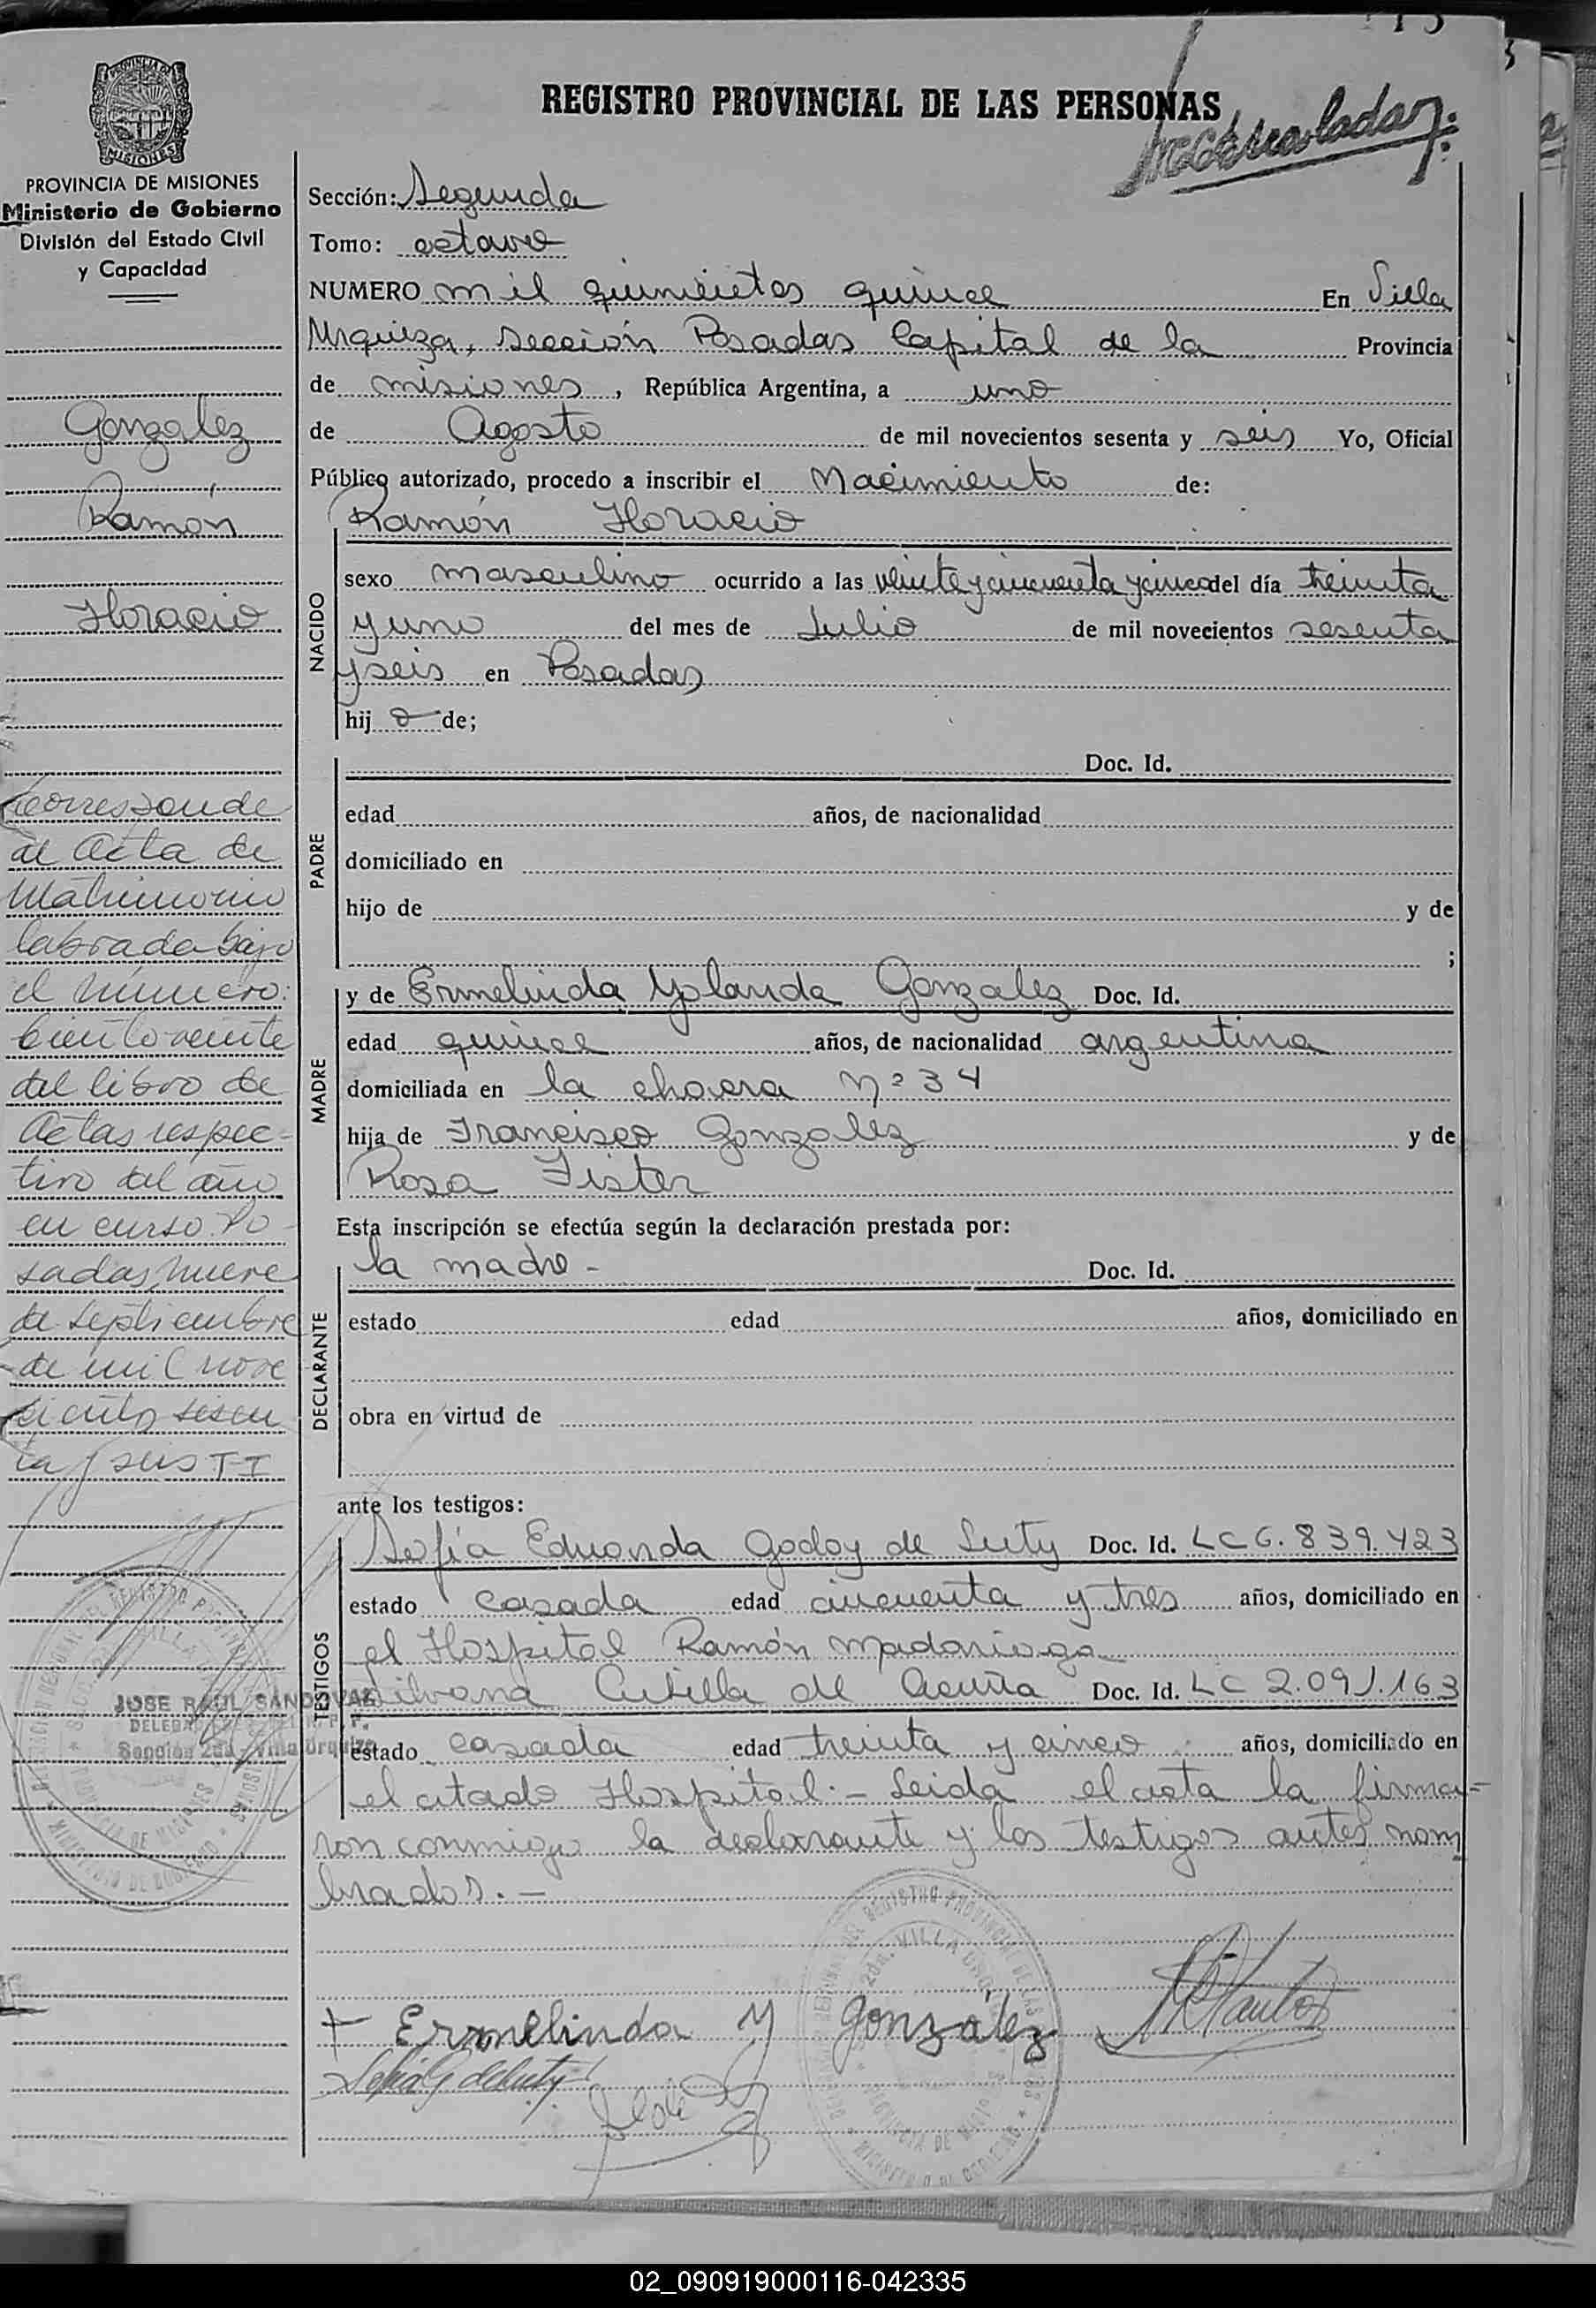 REGISTRO PROVINCIAL DE LAS PERSONAS
PROVINCIA DE MISIONES
Ministerio de Gobierno
División del Estado Civil
y Capacidad
Gonzalez
Ramón
Horacio
Corresponde
al Acta de
Matrimonio
labrada bajo
el número:
Ciento veinte
del libro de
Actas respec-
tivo del año
en curso. Po-
sadas, nueve
de Septiembre
de mil nove
cientos sesen
ta y seis TI
JOSE RAUL SANDOVAL
Sección 2da - Villa Urquiza
Sección: Segunda
Tomo: octavo
NUMERO mil quinientos quince En Villa
Urquiza, sección Posadas Capital de la Provincia
de misiones, República Argentina, a uno
de Agosto de mil novecientos sesenta y seis Yo, Oficial
Público autorizado, procedo a inscribir el Nacimiento de:
Ramón Horacio
NACIDO
sexo masculino ocurrido a las veinte y cincuenta y cinco del día treinta
y uno del mes de Julio de mil novecientos sesenta
y seis en Posadas
hij o de;
PADRE
Doc. Id.
edad años, de nacionalidad
domiciliado en
hijo de y de
;
MADRE
y de Ermelinda Yolanda Gonzalez Doc. Id.
edad quince años, de nacionalidad argentina
domiciliada en la chacra Nº 34
hija de Francisco Gonzalez y de
Rosa Fister
Esta inscripción se efectúa según la declaración prestada por:
DECLARANTE
la madre - Doc. Id.
estado edad años, domiciliado en
obra en virtud de
ante los testigos:
TESTIGOS
Sofía Eduarda Godoy de Doc. Id. LC 6.839.423
estado casada edad cincuenta y tres años, domiciliado en
el Hospital Ramón Madariaga
Silvana de Acuña Doc. Id. LC 2.091.163
estado casada edad treinta y cinco años, domiciliado en
el citado Hospital.- Leida el acta la firma-
ron conmigo la declarante y los testigos antes nom
brados.-
Ermelinda Y González
02_090919000116-042335